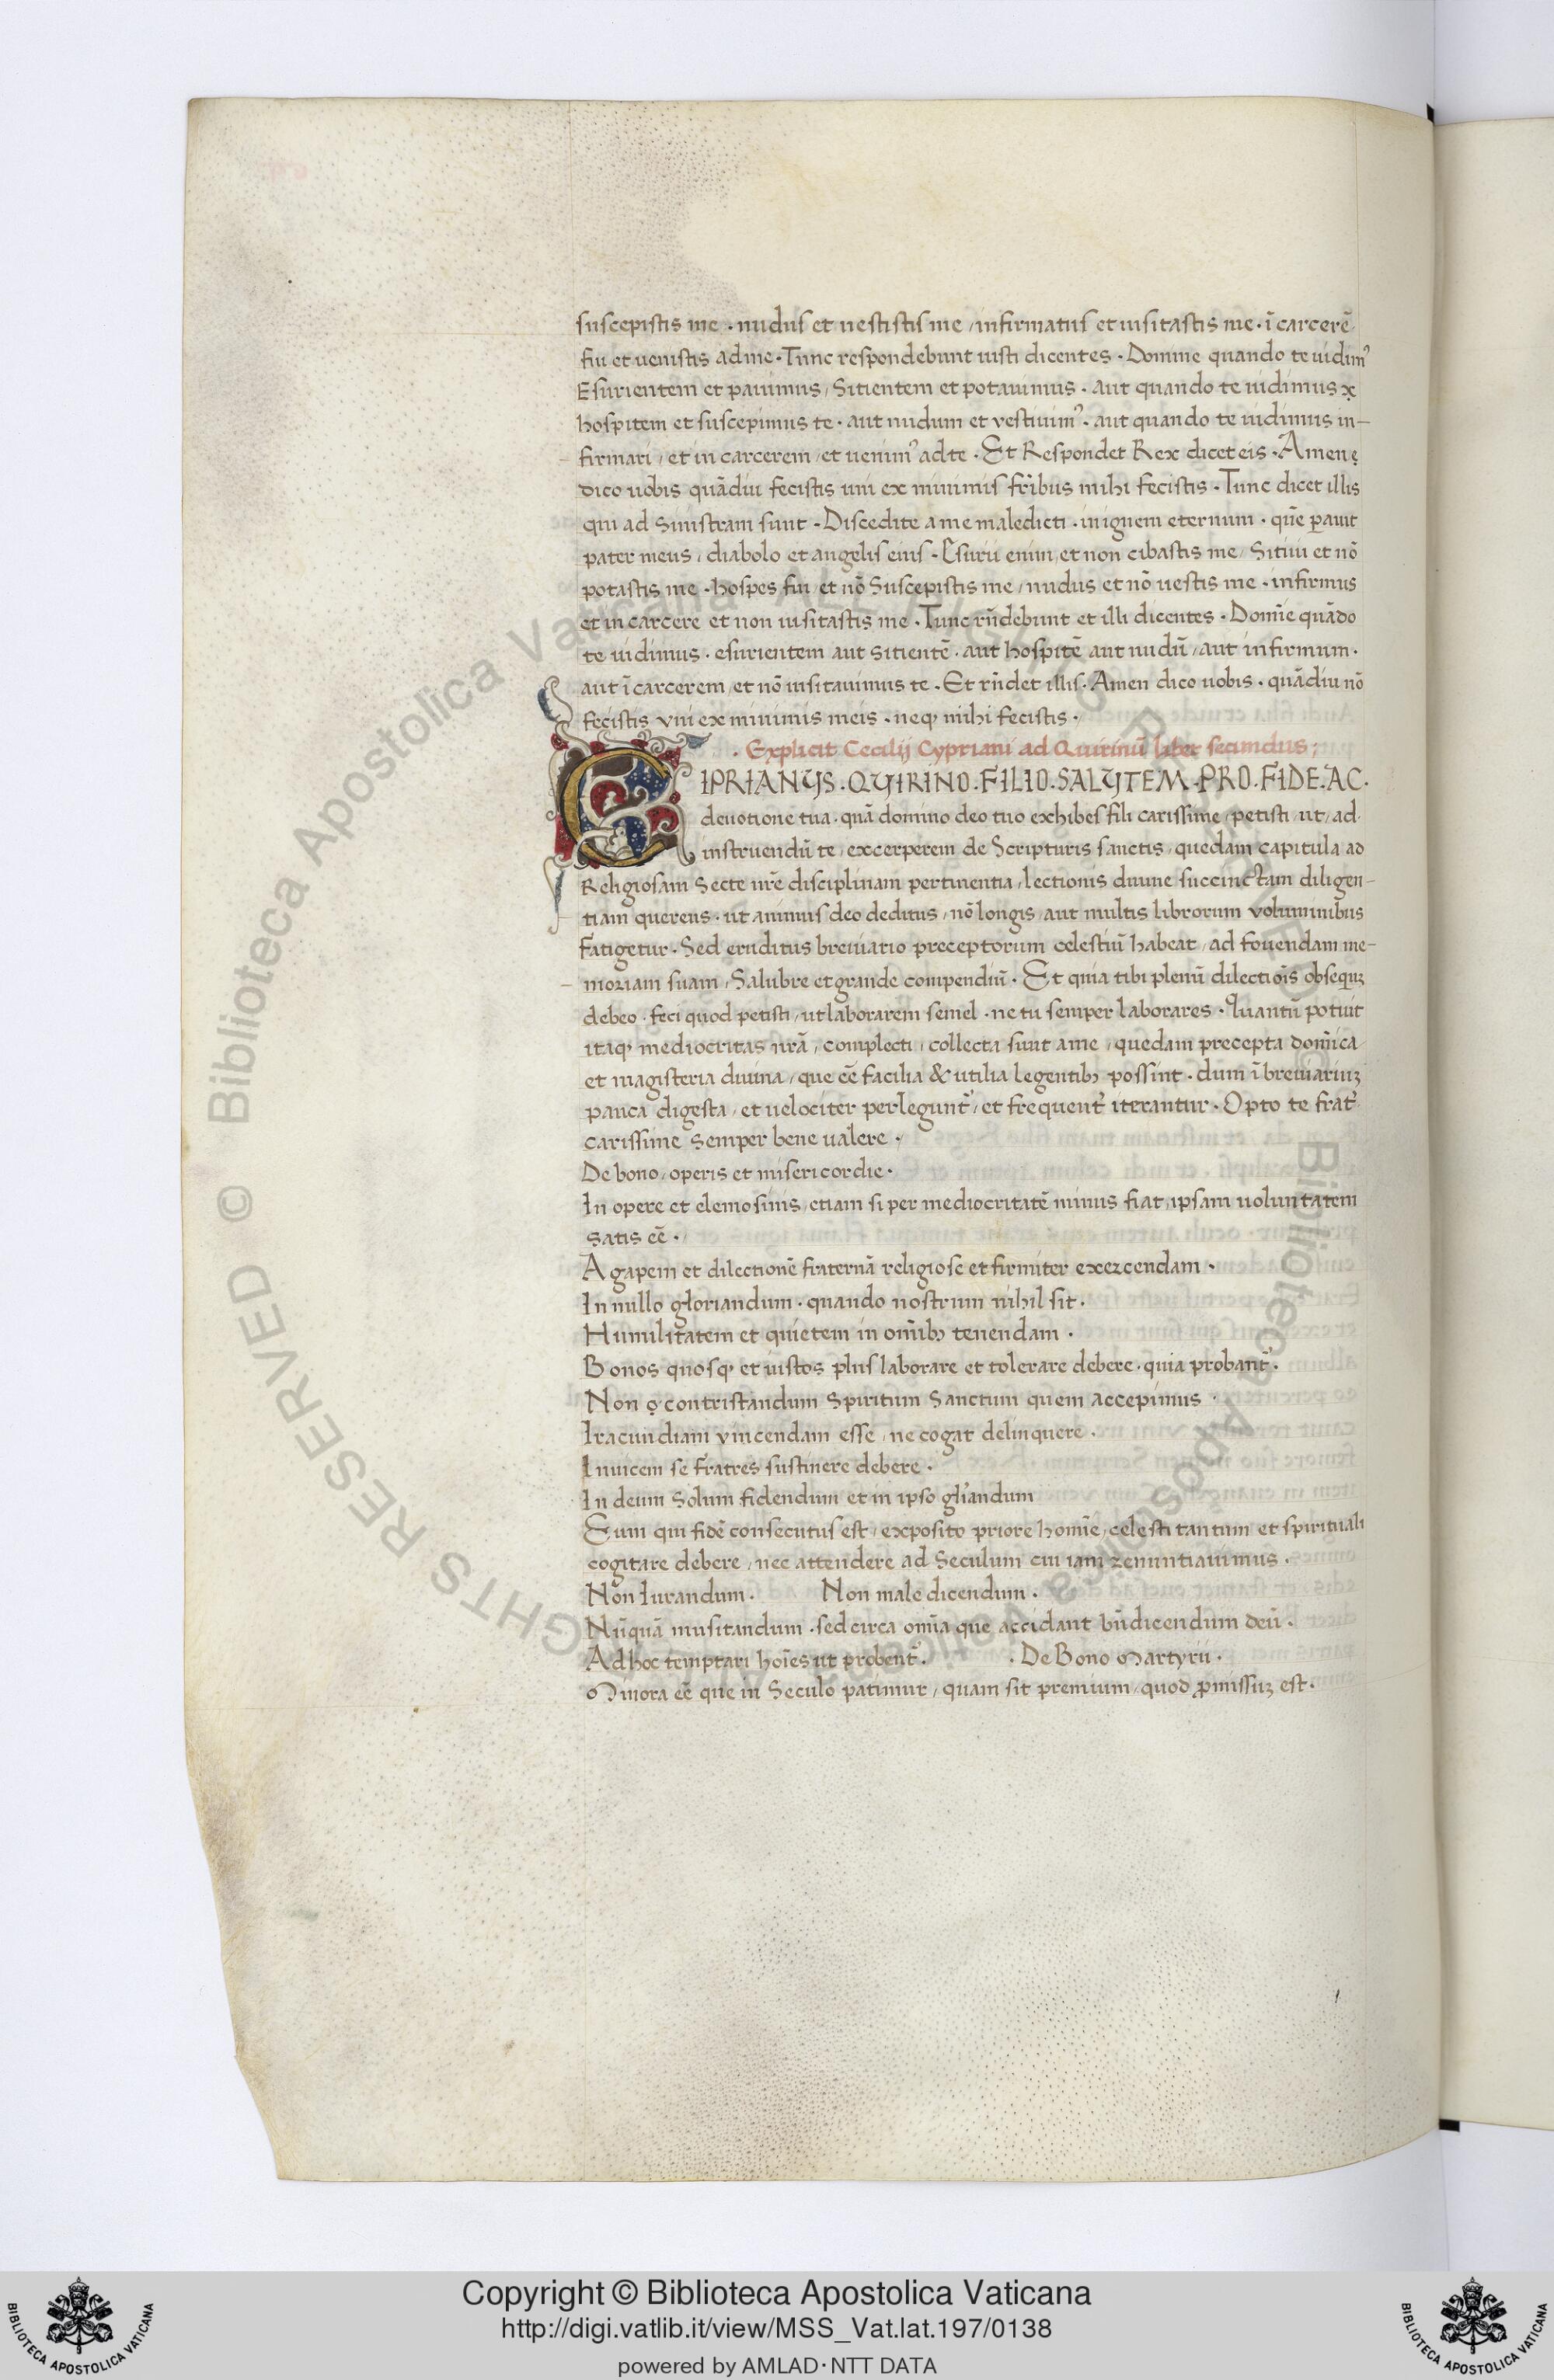 suscepistis me · nudus et uestistis me, infirmatus et uisitastis me · ī carcerē
fui et uenistis ad me · Tunc respondebunt iusti dicentes · Domine quando te uidim᾽
Esurientem et pauimus, Sitientem et potauimus · aut quando te uidimus
hospitem et suscepimus te · aut nudum et vestiuim᾽ · aut quando te uidimus in-
firmari, et in carcerem, et uenim᾽ ad te · Et Respondet Rex dicet eis · Amen
dico uobis quādiu fecistis uni ex minimis fr̄ibus mihi fecistis · Tunc dicet illis
qui ad sinistram sunt · Discedite a me maledicti · in ignem eternum · quē ꝑauit
pater meus, diabolo et angelis eius · Esurii enim, et non cibastis me, Sitiui et nō
potastis me · hospes fui, et nō Suscepistis me, nudus et nō uestis me · infirmus
et in carcere et non uisitastis me · Tunc rn̄debunt et illi dicentes · Domīe quādo
te uidimus · esurientem aut sitientē · aut hospitē aut nudū, aut infirmum ·
aut ī carcerem, et nō uisitauimus te · Et rn̄det illis · Amen dico uobis · quādiu nō
fecistis vni ex minimis meis · neqꝫ mihi fecistis ·
· Explicit Cecilij Cypriani ad Quirinū liber secundus ;
CIPRIANUS · QUIRINO · FILIO · SALUTEM · PRO · FIDE · AC ·
deuotione tua · quā domino deo tuo exhibes fili carissime, petisti, ut, ad ·
instruendū te, excerperem de Scripturis sanctis, quedam capitula ad
Religiosam Secte nr̄e disciplinam pertinentia, lectionis diuine succinctam diligen-
tiam querens · ut animus deo deditus, nō longis, aut multis librorum voluminibus
fatigetur · Sed eruditus breuiario preceptorum celestiū habeat, ad fouendam me-
moriam suam, Salubre et grande compendiū · Et quia tibi plenū dilectiōis obsequiꝫ
debeo · feci quod petisti, ut laborarem semel · ne tu semper laborares · Quantū potuit
itaqꝫ mediocritas nr̄a, complecti, collecta sunt a me, quedam precepta domīca
et magisteria diuina, que eē facilia & utilia legentibꝫ possint · dum ī breuiariuꝫ
pauca digesta, et velociter perleguntʳ, et frequentʳ iterantur · Opto te fratʳ
carissime semper bene ualere ·
De bono, operis et misericordie ·
In opere et elemosinis, etiam si per mediocritatē minus fiat, ipsam uoluntatem
satis eē ·
Agapem et dilectionē fraternā religiose et firmiter exercendam ·
In nullo gloriandum · quando nostrum nihil sit ·
Humilitatem et quietem in omībꝫ tenendam ·
Bonos quosqꝫ et iustos plus laborare et tolerare debere · quia probantʳ ·
Non contristandum Spiritum Sanctum quem accepimus ·
Iracundiam vincendam esse, ne cogat delinquere ·
Inuicem se fratres sustinere debere ·
In deum solum fidendum et in ipso gl̄iandum
Eum qui fidē consecutus est, exposito priore homīe, celesti tantum et spirituali
cogitare debere, nec attendere ad Seculum cui iam renuntiauimus ·
Non Iurandum · Non male dicendum ·
Nūquā musitandum · sed circa omīa que accidant bn̄dicendum deū ·
Ad hoc temptari hoīes ut probentʳ · · De Bono Martyrii ·
Minora eē que in Seculo patimur, quam sit premium, quod ꝓmissuꝫ est ·
Copyright © Biblioteca Apostolica Vaticana
http://digi.vatlib.it/view/MSS_Vat.lat.197/0138
powered by AMLAD·NTT DATA